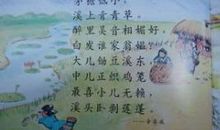 茅檐低小，
溪上青青草。
醉里吴音相媚好，
白发谁家翁媪？
大儿锄豆溪东，
中儿正织鸡笼。
最喜小儿无赖，
溪头卧剥莲蓬。